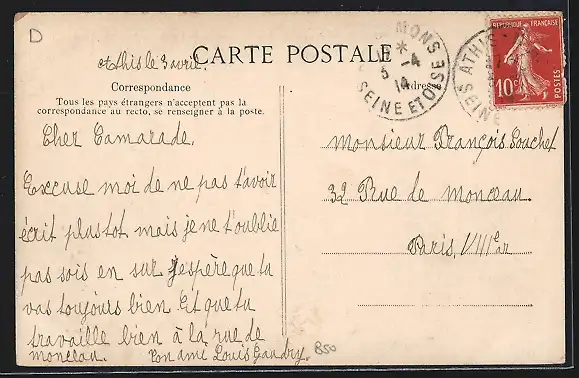 D
Athis le 3 avril.
CARTE POSTALE
MONS
5 -4
14
SEINE ET OISE
ATHIS
SEINE
REPUBLIQUE FRANÇAISE
10c
POSTES
Correspondance
Tous les pays étrangers n'acceptent pas la
correspondance au recto, se renseigner à la poste.
Adresse
Cher Camarade.
Excuse moi de ne pas t'avoir
écrit plustot mais je ne t'oublie
pas sois en sur j'espère que ta
vas toujours bien. Et que tu
travaille bien à la rue de
monceau. Ton ami Louis Gaudry.
850
Monsieur François Souchet
32 Rue de monceau.
Paris, VIIIe ar